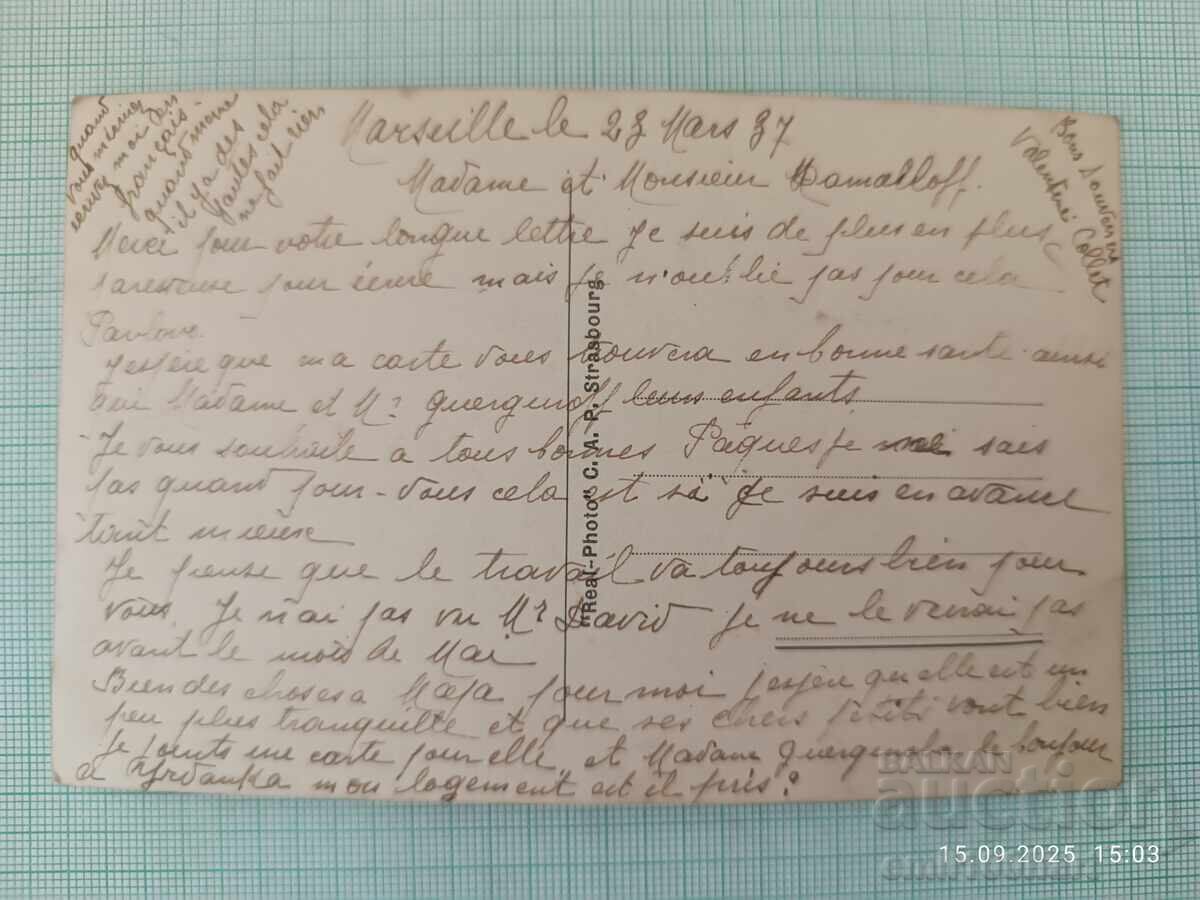 Marseille le 23 Mars 37
Madame et Monsieur
Merci pour votre longue lettre je suis de plus en plus
pour écrire mais je n'oublie pas pour cela
Pavlove.
J'espère que ma carte vous trouvera en bonne santé ainsi
que Madame et Mr leurs enfants
Je vous souhaite a tous bonnes Pâques je sais
pas quand pour-vous cela est si je suis en avance
tant mieux
Je pense que le travail va toujours bien pour
vous. Je n'ai pas vu Mr David je ne le verrai pas
avant le mois de Mai
Bien des choses a Maja pour moi j'espère qu'elle est un
peu plus tranquille et que ses chers petits vont bien
je joints une carte pour elle, et Madame le bonjour
a mon logement est il pris?
quand
vous
mon
français
quand même
il y a des
fautes cela
ne fait rien
Bons Souvenirs
Valentine Collet
"Real-Photo" C. A. P. Strasbourg.
BALKAN
auction
15.09.2025 15:03